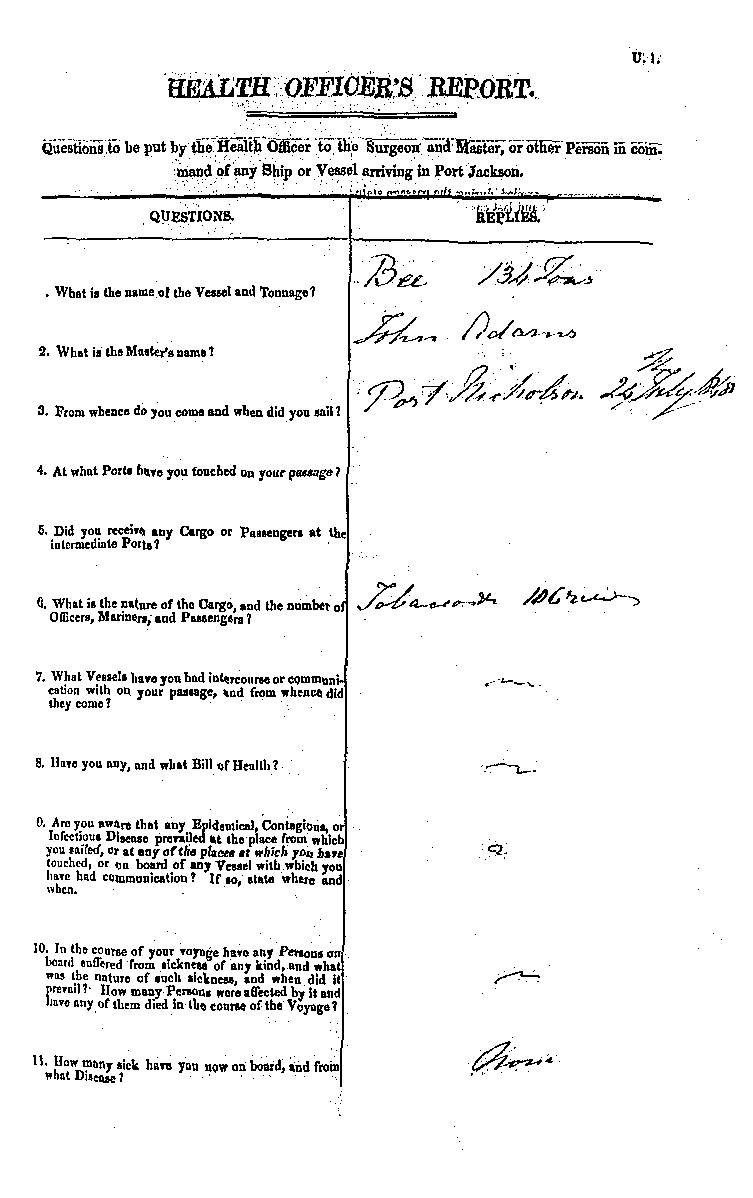 U. 1.
HEALTH OFFICER'S REPORT.
Questions to be put by the Health Officer to the Surgeon and Master, or other Person in com-
mand of any Ship or Vessel arriving in Port Jackson.
QUESTIONS.
REPLIES.
. What is the name of the Vessel and Tonnage?
Bee 134 Tons
2. What is the Master's name?
John Adams
3. From whence do you come and when did you sail?
Port Nicholson 24 July
4. At what Ports have you touched on your passage?
5. Did you receive any Cargo or Passengers at the
intermediate Ports?
6. What is the nature of the Cargo, and the number of
Officers, Mariners, and Passengers?
Tobacco
7. What Vessels have you had intercourse or communi-
cation with on your passage, and from whence did
they come?
8. Have you any, and what Bill of Health?
9. Are you aware that any Epidemical, Contagious, or
Infectious Disease prevailed at the place from which
you sailed, or at any of the places at which you have
touched, or on board of any Vessel with which you
have had communication? If so, state where and
when.
10. In the course of your voyage have any Persons on
board suffered from sickness of any kind, and what
was the nature of such sickness, and when did it
prevail? How many Persons were affected by it and
have any of them died in the course of the Voyage?
11. How many sick have you now on board, and from
what Disease?
None